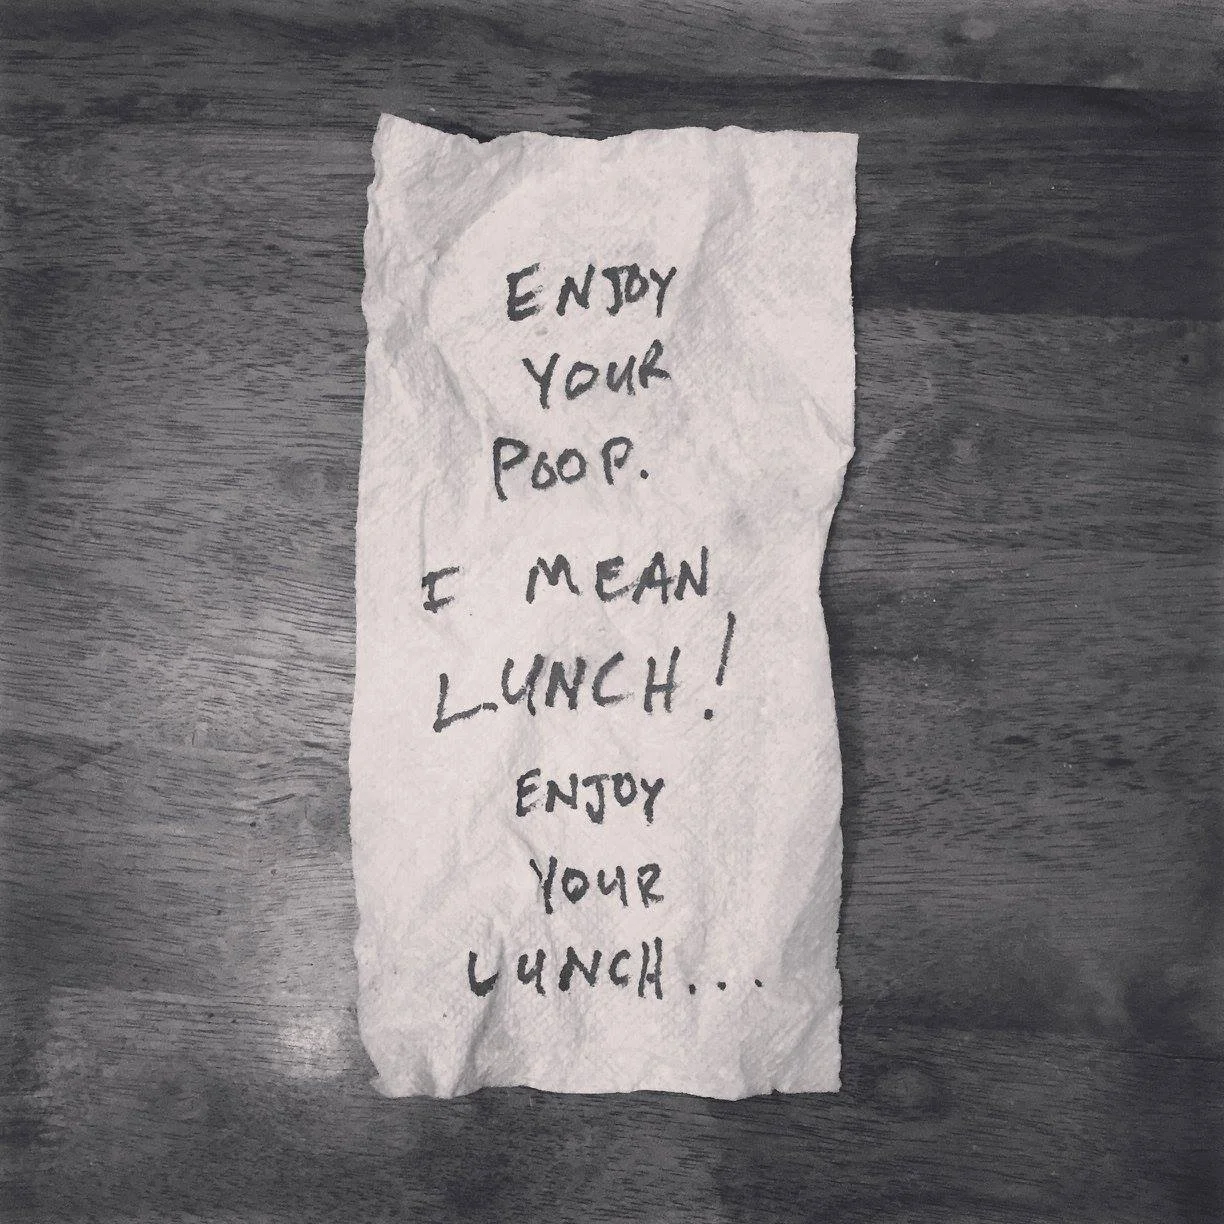 ENJOY
YOUR
POOP.
I MEAN
LUNCH!
ENJOY
YOUR
LUNCH...